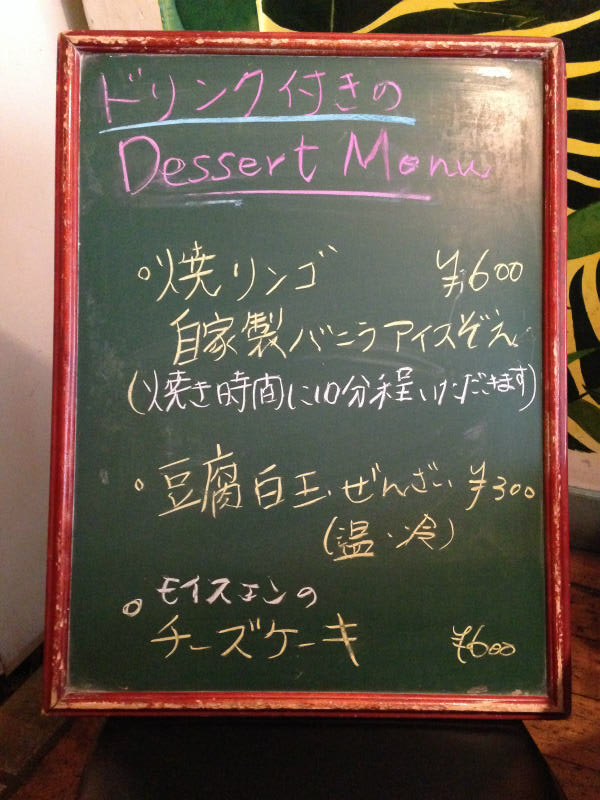 ドリンク付きの
Dessert Menu
○焼リンゴ ¥600
自家製バニラアイスぞえ
(焼き時間に10分程いただきます)
○豆腐白玉ぜんざい ¥300
(温・冷)
○モイスエンの
チーズケーキ ¥600